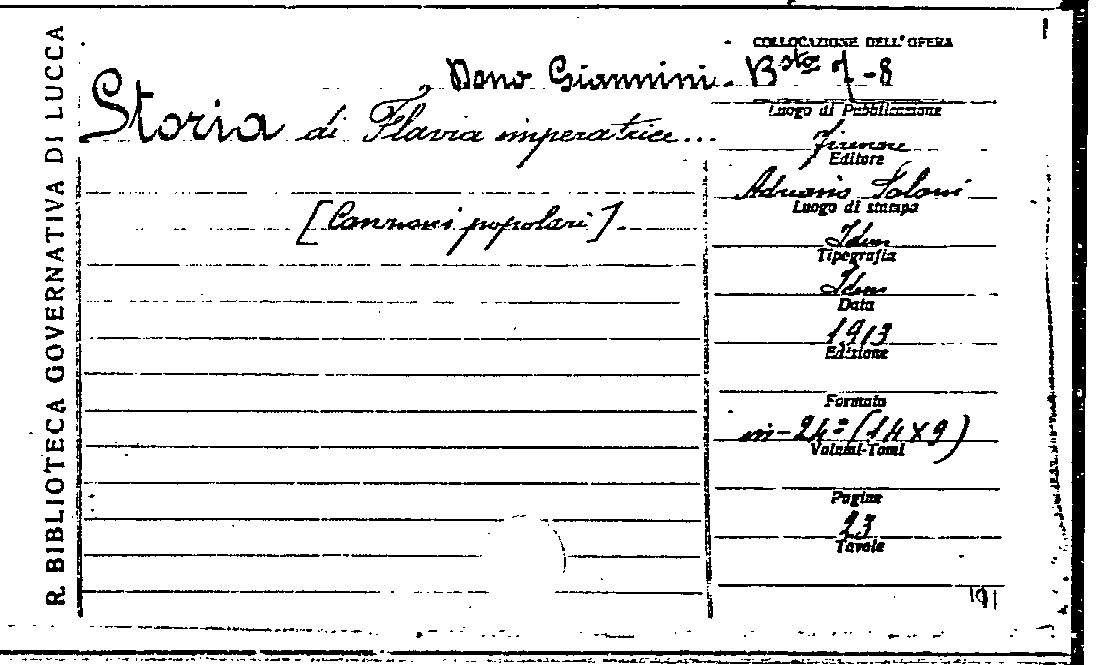 R. BIBLIOTECA GOVERNATIVA DI LUCCA
Dono Giannini.
Storia di Flavia imperatrice...
[Canzoni popolari].
COLLOCAZIONE DELL'OPERA
B.sta 7-8
Luogo di Pubblicazione
Firenze
Editore
Adriano Salani
Luogo di stampa
Idem
Tipografia
Idem
Data
1913
Edizione
Formato
in-24° (14x9)
Volumi-Tomi
Pagine
23
Tavole